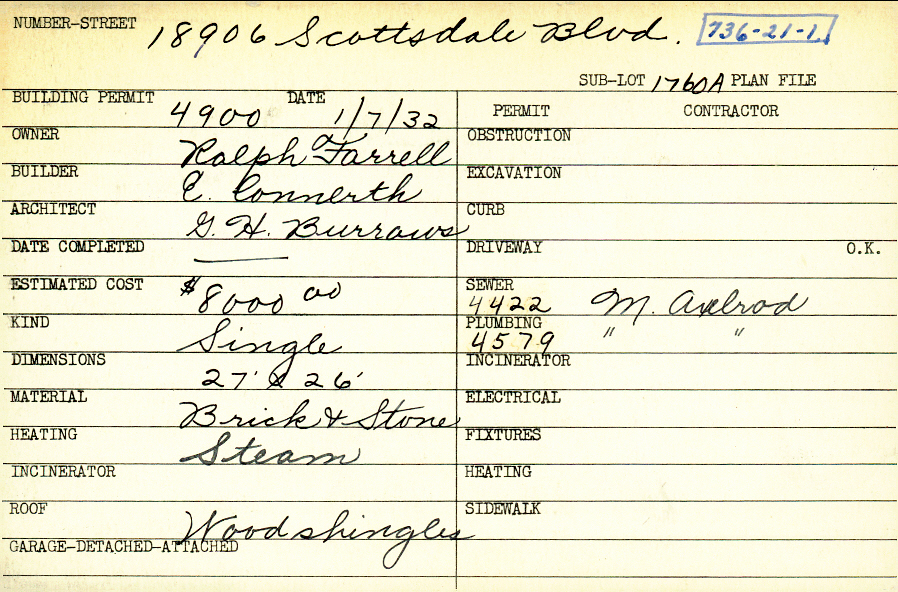 NUMBER-STREET 18906 Scottsdale Blvd. 736-21-1
SUB-LOT 1760A PLAN FILE
BUILDING PERMIT 4900 DATE 1/7/32
PERMIT CONTRACTOR
OWNER Ralph Farrell
OBSTRUCTION
BUILDER E. Connerth
EXCAVATION
ARCHITECT G. H. Burrows
CURB
DATE COMPLETED ——
DRIVEWAY O.K.
ESTIMATED COST $8000 00
SEWER 4422 M. Axelrod
KIND Single
PLUMBING 4579 " "
DIMENSIONS 27' & 26'
INCINERATOR
MATERIAL Brick & Stone
ELECTRICAL
HEATING Steam
FIXTURES
INCINERATOR
HEATING
ROOF Wood shingles
SIDEWALK
GARAGE-DETACHED-ATTACHED